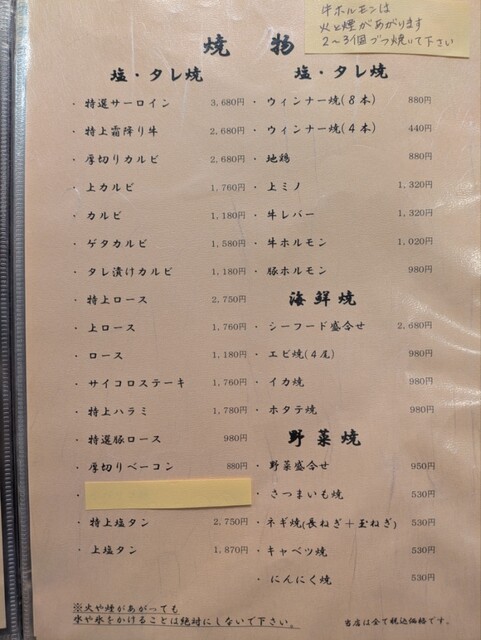 牛ホルモンは
火と煙があがります
2〜3個づつ焼いて下さい
焼物
塩・タレ焼
・特選サーロイン 3,680円
・特上霜降り牛 2,680円
・厚切りカルビ 2,680円
・上カルビ 1,760円
・カルビ 1,180円
・ゲタカルビ 1,580円
・タレ漬けカルビ 1,180円
・特上ロース 2,750円
・上ロース 1,760円
・ロース 1,180円
・サイコロステーキ 1,760円
・特上ハラミ 1,780円
・特選豚ロース 980円
・厚切りベーコン 880円
・特上塩タン 2,750円
・上塩タン 1,870円
塩・タレ焼
・ウィンナー焼(8本) 880円
・ウィンナー焼(4本) 440円
・地鶏 880円
・上ミノ 1,320円
・牛レバー 1,320円
・牛ホルモン 1,020円
・豚ホルモン 980円
海鮮焼
・シーフード盛合せ 2,680円
・エビ焼(4尾) 980円
・イカ焼 980円
・ホタテ焼 980円
野菜焼
・野菜盛合せ 950円
・さつまいも焼 530円
・ネギ焼(長ねぎ+玉ねぎ) 530円
・キャベツ焼 530円
・にんにく焼 530円
※火や煙があがっても
水や氷をかけることは絶対にしないで下さい。
当店は全て税込価格です。